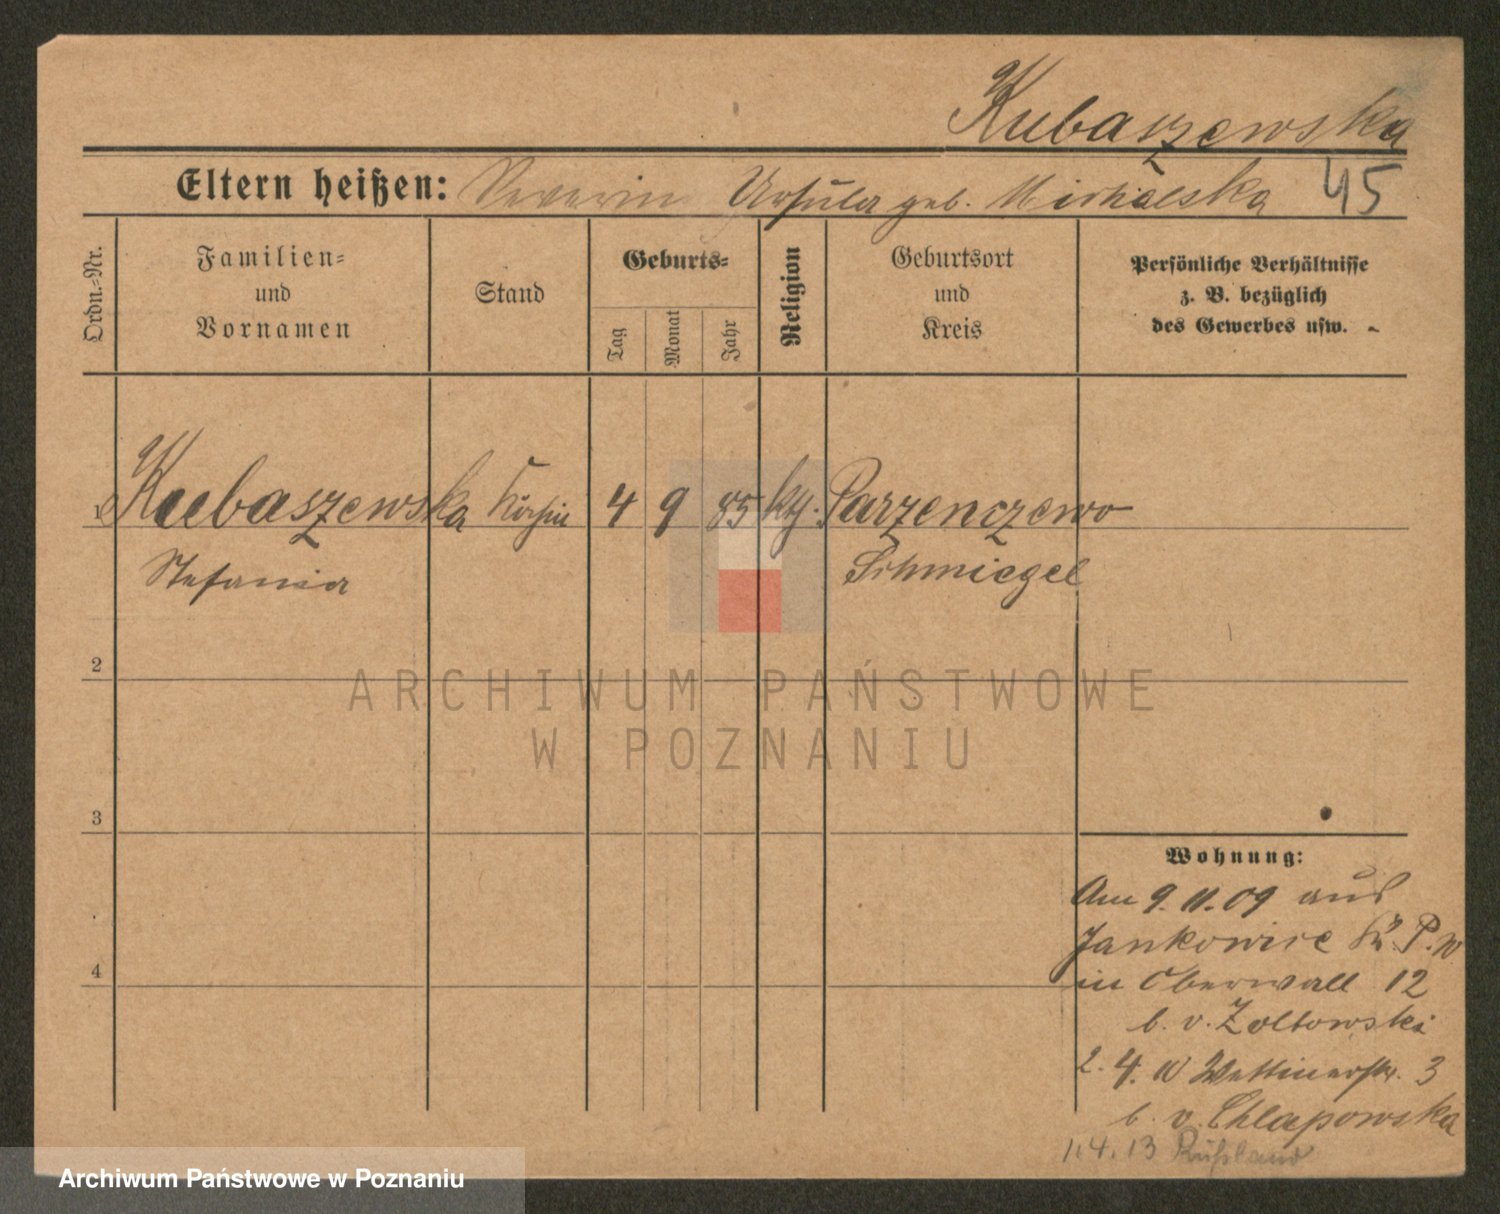 Kubaszewska
Eltern heißen: Severin Ursula geb. Michalska 45
Ordn.=Nr.
Familien=
und
Vornamen
Stand
Geburts=
Tag
Monat
Jahr
Religion
Geburtsort
und
Kreis
Persönliche Verhältnisse
z. B. bezüglich
des Gewerbes usw.
1 Kubaszewska Köchin 4 9 85 kth. Parzenczewo
Stefania Schmiegel
2
ARCHIWUM PAŃSTWOWE
W POZNANIU
3
Wohnung:
Am 9. 11. 09 aus
Jankowice P. W
4
in Oberwall 12
b. v. Zoltowski
2. 4. 10 Wettinerstr. 3
b. v. Chlapowska
1.4.13 Rußland
Archiwum Państwowe w Poznaniu